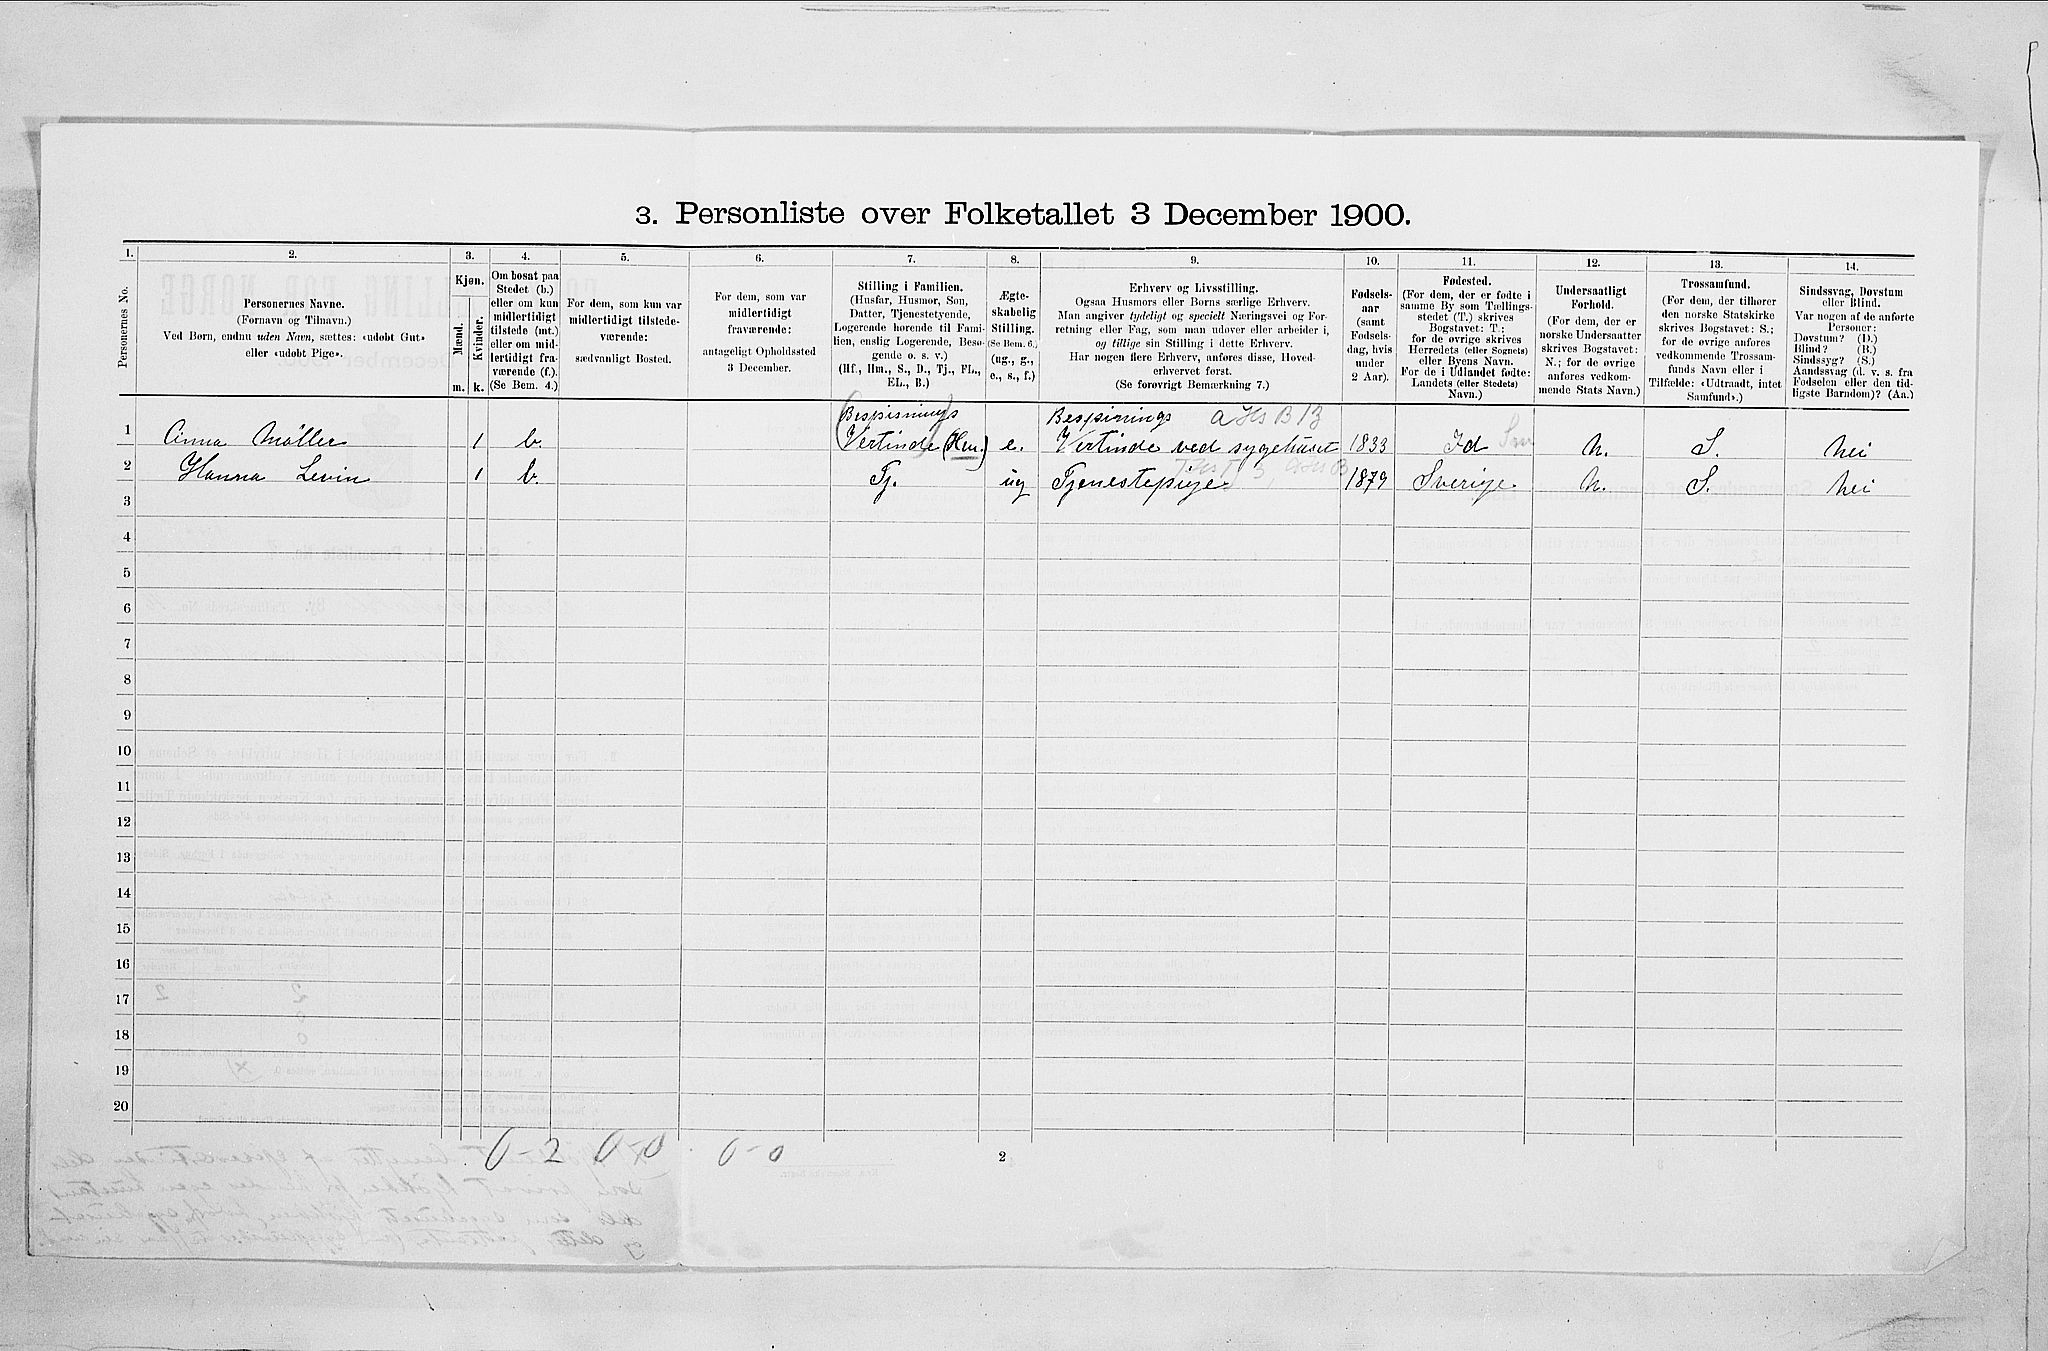 3. Personliste over Folketallet 3 December 1900.
1.
Personernes No.
2.
Personernes Navne.
(Fornavn og Tilnavn.)
Ved Børn, endnu uden Navn, sættes: «udøbt Gut»
eller «udøbt Pige».
3.
Kjøn.
Mænd.
Kvinder.
m.
k.
4.
Om bosat paa
Stedet (b.)
eller om kun
midlertidigt
tilstede (mt.)
eller om mid-
lertidigt fra-
værende (f.).
(Se Bem. 4.)
5.
For dem, som kun var
midlertidigt tilstede-
værende:
sædvanligt Bosted.
6.
For dem, som var
midlertidigt
fraværende:
antageligt Opholdssted
3 December.
7.
Stilling i Familien.
(Husfar, Husmor, Søn,
Datter, Tjenestetyende,
Logerende hørende til Fami-
lien, enslig Logerende, Besø-
gende o. s. v.)
(Hf., Hm., S., D., Tj., FL.,
EL., B.)
8.
Ægte-
skabelig
Stilling.
(Se Bem. 6.)
(ug., g.,
e., s., f.)
9.
Erhverv og Livsstilling.
Ogsaa Husmors eller Børns særlige Erhverv.
Man angiver tydeligt og specielt Næringsvei og For-
retning eller Fag, som man udøver eller arbeider i,
og tillige sin Stilling i dette Erhverv.
Har nogen flere Erhverv, anføres disse, Hoved-
erhvervet først.
(Se forøvrigt Bemærkning 7.)
10.
Fødsels-
aar
(samt
Fødsels-
dag, hvis
under
2 Aar).
11.
Fødested.
(For dem, der er fødte i
samme By som Tællings-
stedet (T.) skrives
Bogstavet: T.;
for de øvrige skrives
Herredets (eller Sognets)
eller Byens Navn.
For de i Udlandet fødte:
Landets (eller Stedets)
Navn.)
12.
Undersaatligt
Forhold.
(For dem, der er
norske Undersaatter
skrives Bogstavet:
N.; for de øvrige
anføres vedkom-
mende Stats Navn.)
13.
Trossamfund.
(For dem, der tilhører
den norske Statskirke
skrives Bogstavet: S.;
for de øvrige anføres
vedkommende Trossam-
funds Navn eller i
Tilfælde: «Udtraadt, intet
Samfund».)
14.
Sindssvag, Døvstum
eller Blind.
Var nogen af de anførte
Personer:
Døvstum? (D.)
Blind? (B.)
Sindssyg? (S.)
Aandssvag (d. v. s. fra
Fødselen eller den tid-
ligste Barndom)? (Aa.)
(Bespisnings Bespisnings a Hs B 13
1 Anna Møller 1 b. Vertinde) (Hm.) e. Vertinde ved sygehuset 1833 Id N. S. Nei
2 Hanna Levin 1 b. Tj. ug Tjenestepige 1879 Sverige. N. S. Nei
3
4
5
6
7
8
9
10
11
12
13
14
15
16
17
18
19
20
0-2 0-0 0-0
2